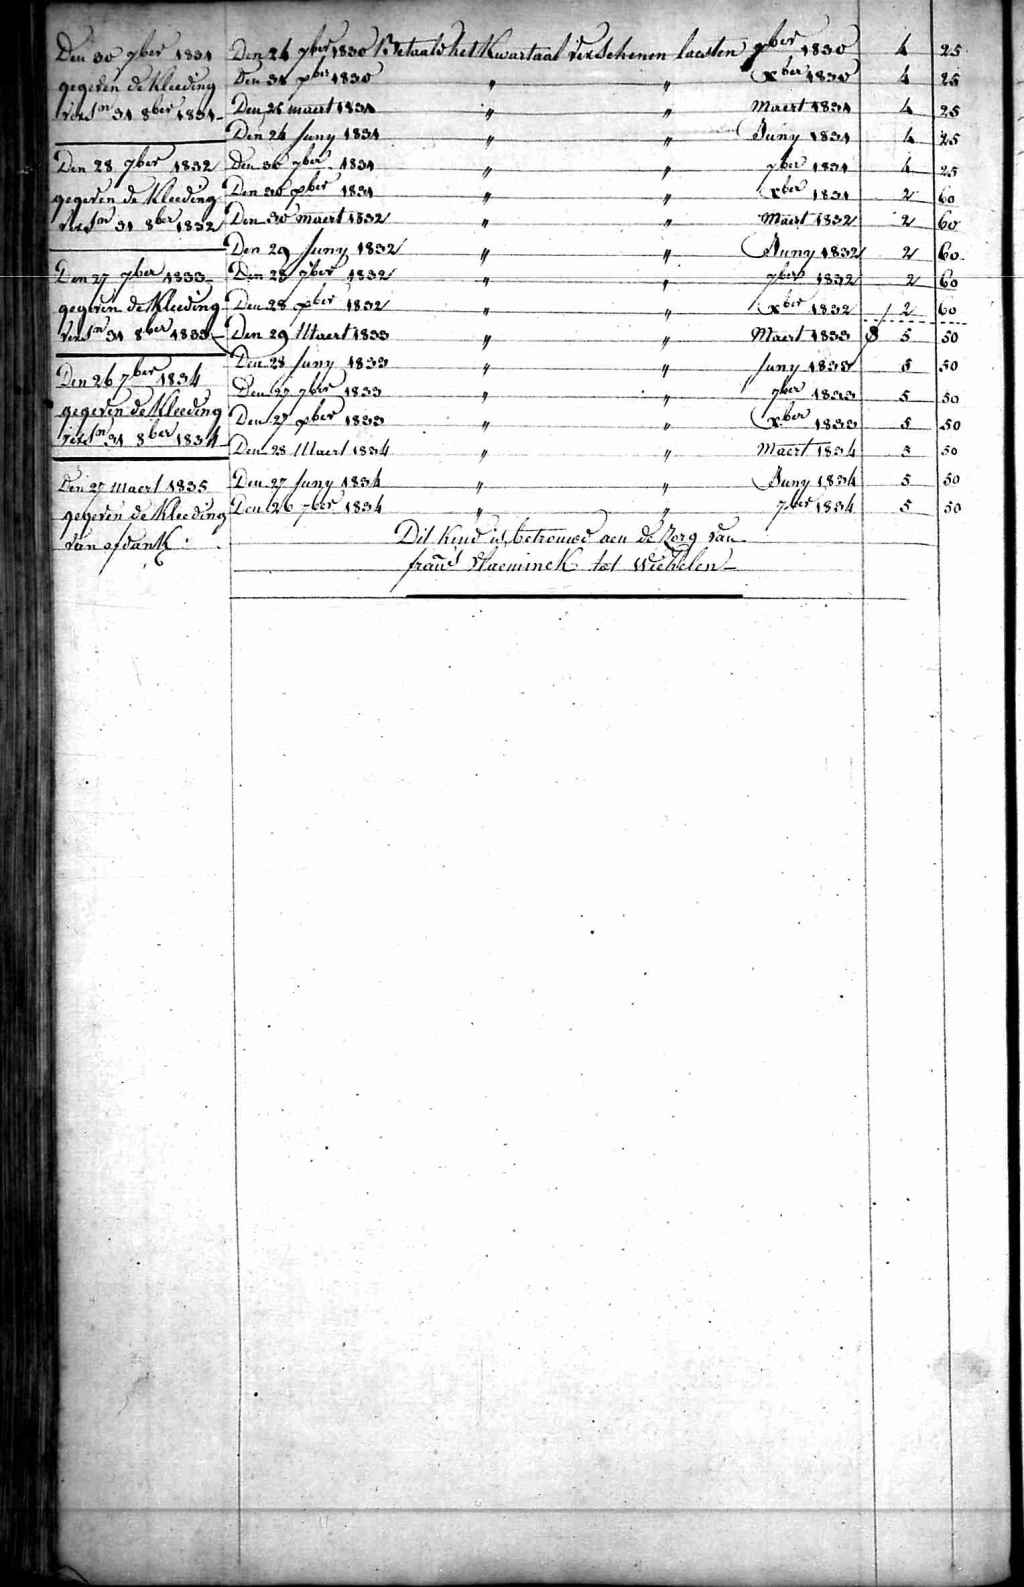 Den 30 7ber 1831
gegeven de Kleeding
versn 31 8ber 1831
Den 28 7ber 1832
gegeven de Kleeding
versn 31 8ber 1832
Den 27 7ber 1833
gegeven de Kleeding
versn 31 8ber 1833
Den 26 7ber 1834
gegeven de Kleeding
versn 31 8ber 1834
Den 27 maert 1835
gegeven de Kleeding
van ofdank
Den 24 7ber 1830 Betaald het Kwartaal verschenen laesten 7ber 1830 4 25
Den 31 xber 1830 " " Xber 1830 4 25
Den 26 maert 1831 " " Maert 1831 4 25
Den 24 Juny 1831 " " Juny 1831 4 25
Den 30 7ber 1831 " " 7ber 1831 4 25
Den 30 xber 1831 " " Xber 1831 2 60
Den 30 maert 1832 " " Maert 1832 2 60
Den 29 Juny 1832 " " Juny 1832 2 60
Den 28 7ber 1832 " " 7ber 1832 2 60
Den 28 xber 1832 " " Xber 1832 2 60
Den 29 Maert 1833 " " Maert 1833 5 50
Den 28 Juny 1833 " " Juny 1833 5 50
Den 27 7ber 1833 " " 7ber 1833 5 50
Den 27 xber 1833 " " Xber 1833 5 50
Den 28 Maert 1834 " " Maert 1834 5 50
Den 27 Juny 1834 " " Juny 1834 5 50
Den 26 7ber 1834 " " 7ber 1834 5 50
Dit Kind is betrouwd aen de Zorg van
frans Vlaeminck tot Wichelen